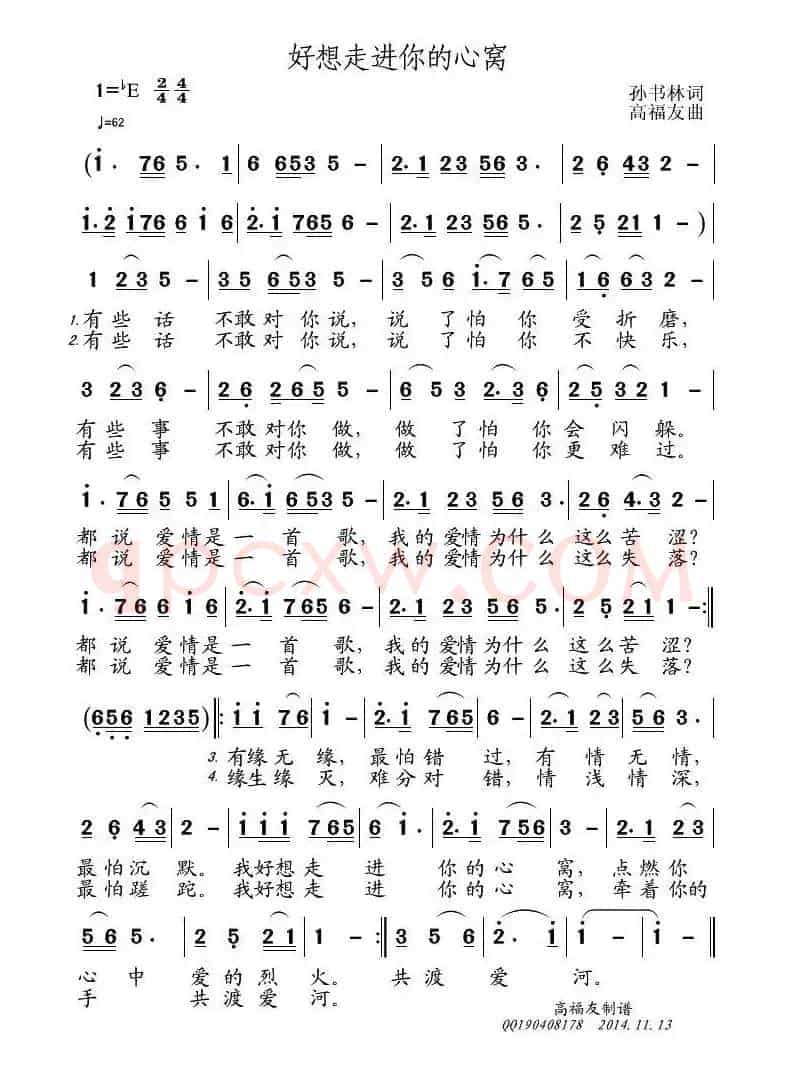 好想走进你的心窝
1=♭E 2/4 4/4
孙书林 词
高福友 曲
♩=62
(1· 765· 1 | 6 6535 - | 2·1 23563· | 26432 - |
1·2 176616 | 2·1 7656 - | 2·1 23563· | 25211 - )
1 235 - | 35 6535 - | 3561·765 | 16632 - |
1.有些话 不敢对你说,说了怕你受折磨,
2.有些话 不敢对你说,说了怕你不快乐,
3 236 - | 26 2655 - | 6532·36 | 25352 - |
有些事 不敢对你做,做了怕你会闪躲。
有些事 不敢对你做,做了怕你更难过。
1·76551 | 6·1 6535 - | 2·1 23563· | 264·32 - |
都说爱情是一首歌,我的爱情为什么这么苦涩?
都说爱情是一首歌,我的爱情为什么这么失落?
qpcxw.com
1·76616 | 2·1 7656 - | 2·1 23563· | 25211 - :‖
都说爱情是一首歌,我的爱情为什么这么苦涩?
都说爱情是一首歌,我的爱情为什么这么失落?
(656 1235)‖: 11 76 | 1 - | 2·1 765 | 6 - | 2·1 23 | 563· |
3.有缘无缘,最怕错过,有情无情,
4.缘生缘灭,难分对错,情浅情深,
2643 | 2 - | 111 765 | 61· | 2 756 | 3 - | 2·1 23 |
最怕沉默。我好想走进你的心窝,点燃你
最怕蹉跎。我好想走进你的心窝,牵着你的
565· | 25 21 | 1 - :‖ 35 656 | 2· 1 | 1 - ‖
心中爱的烈火。共渡爱河。
手共渡爱河。
高福友制谱
QQ190408178 2014.11.13